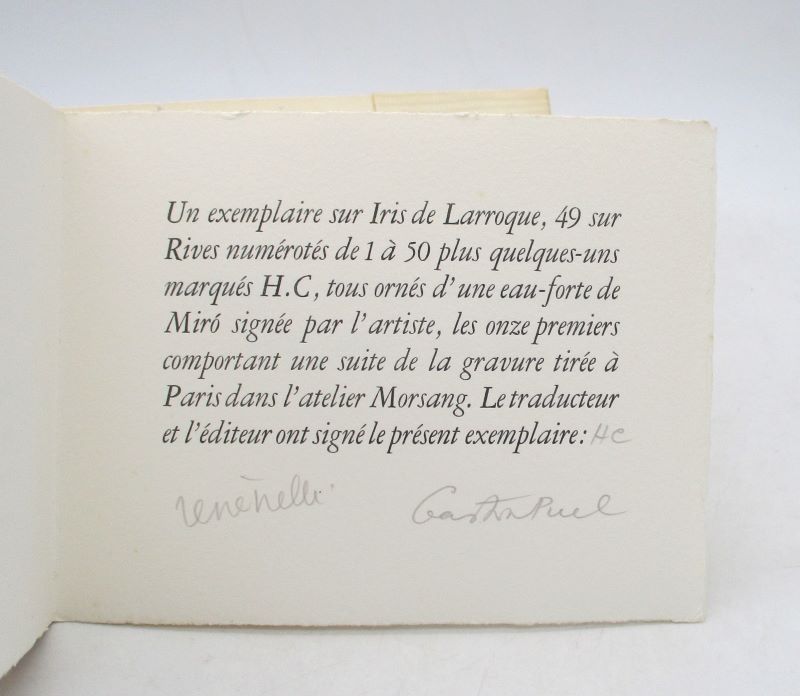 Un exemplaire sur Iris de Larroque, 49 sur
Rives numérotés de 1 à 50 plus quelques-uns
marqués H.C, tous ornés d'une eau-forte de
Miró signée par l'artiste, les onze premiers
comportant une suite de la gravure tirée à
Paris dans l'atelier Morsang. Le traducteur
et l'éditeur ont signé le présent exemplaire: HC
René Nelli Gaston Puel